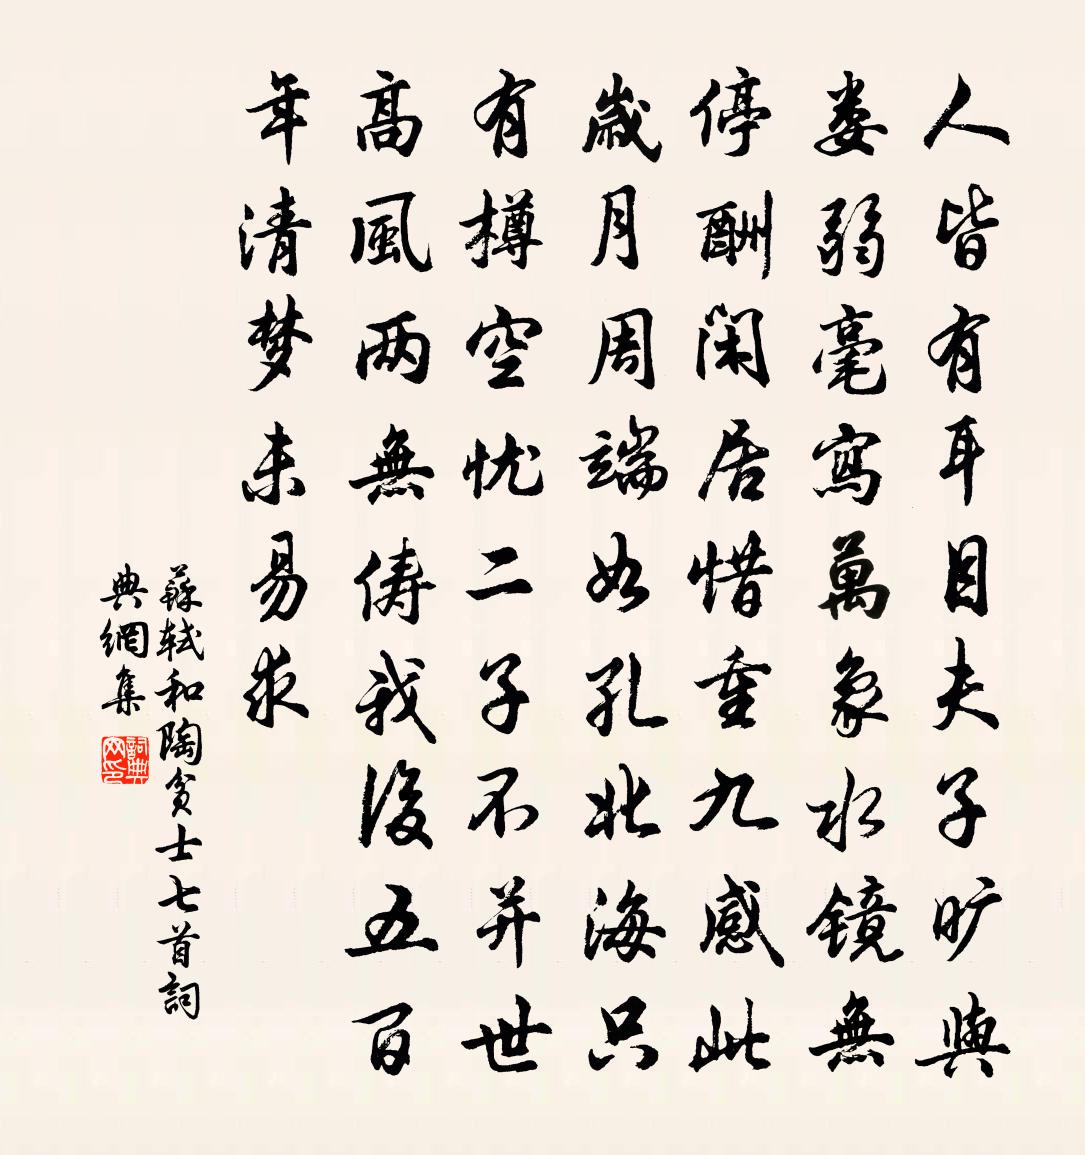 人皆有耳目夫子旷與
娄弱毫寫萬象水镜無
停酬闲居惜重九感此
歲月周端如孔北海只
有樽空忧二子不并世
高風两無俦我後五百
年清梦未易求
蘇轼和陶贫士七首詞
典網集
詞典网印